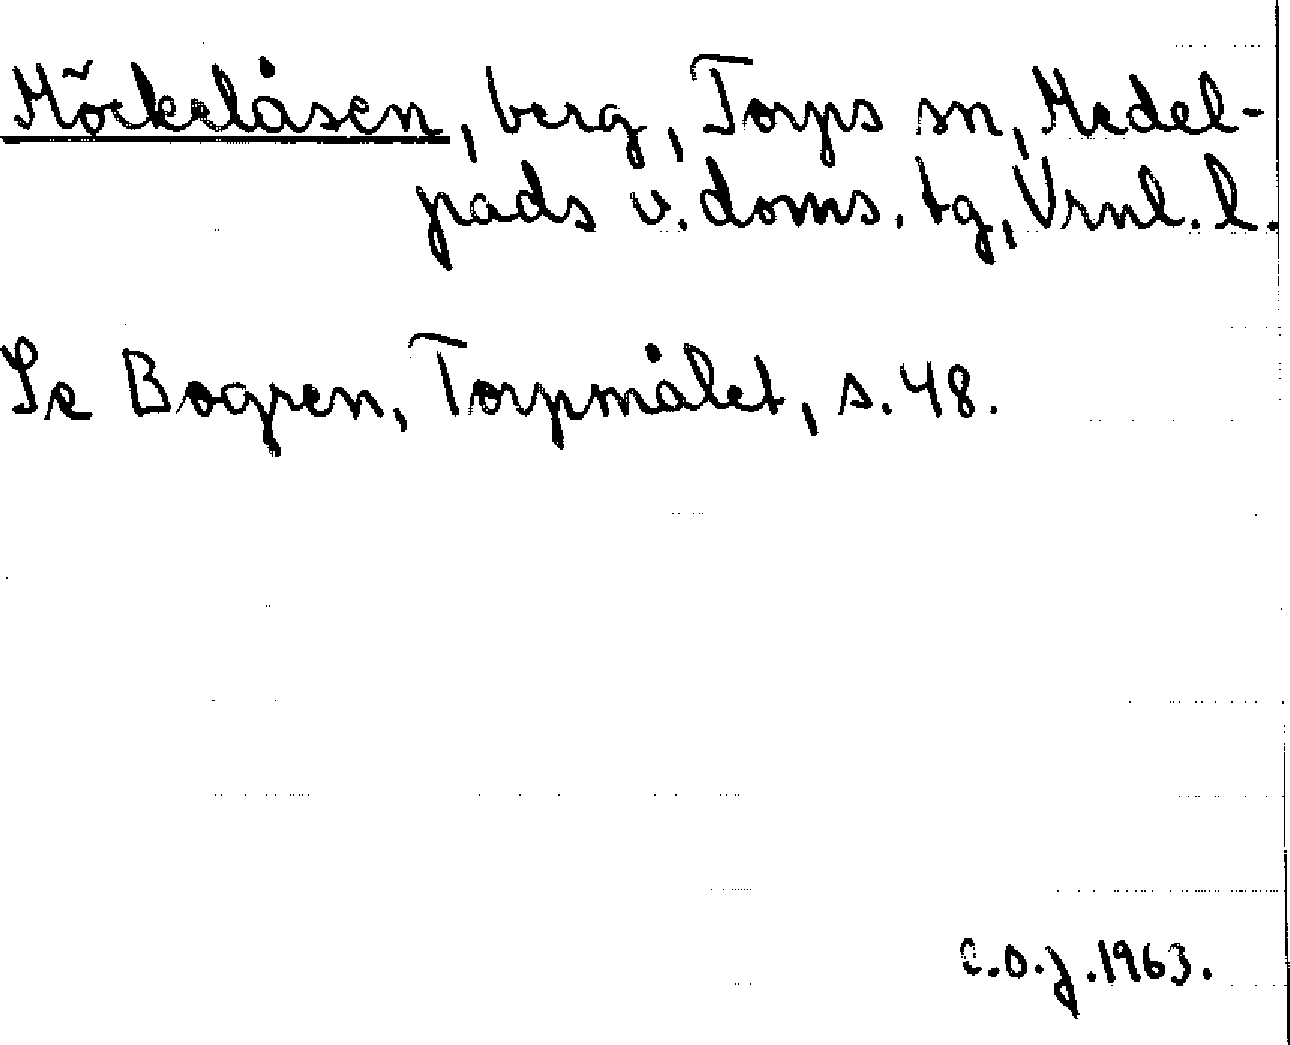 Möckelåsen, berg, Torps sn, Medel-
pads v. doms. tg, Vrnl. l.
Se Bogren, Torpmålet, s. 48.
C.O.J. 1963.